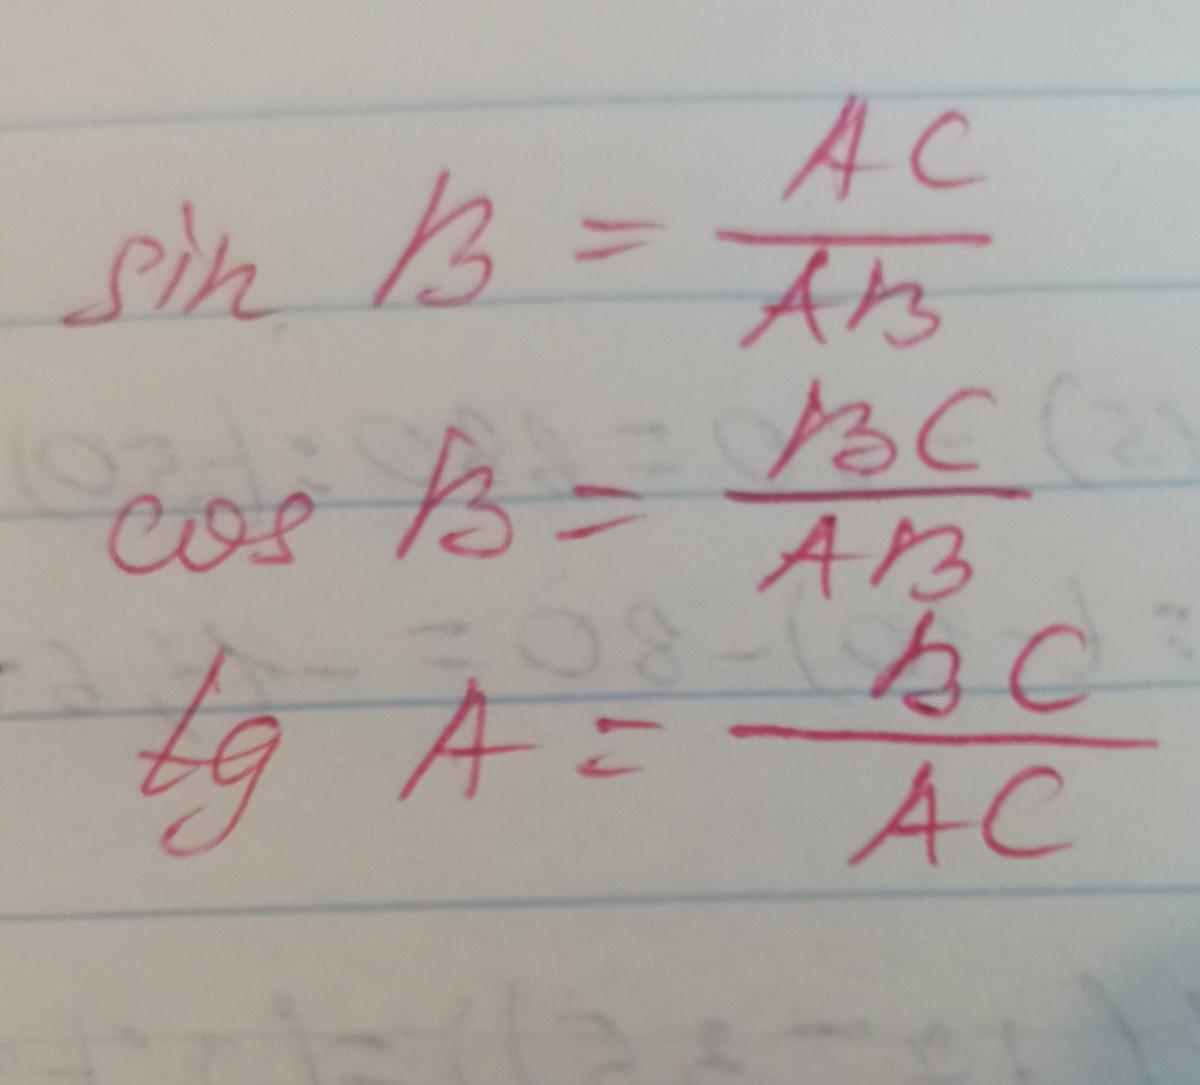 sin B = AC/AB
cos B = BC/AB
tg A = BC/AC